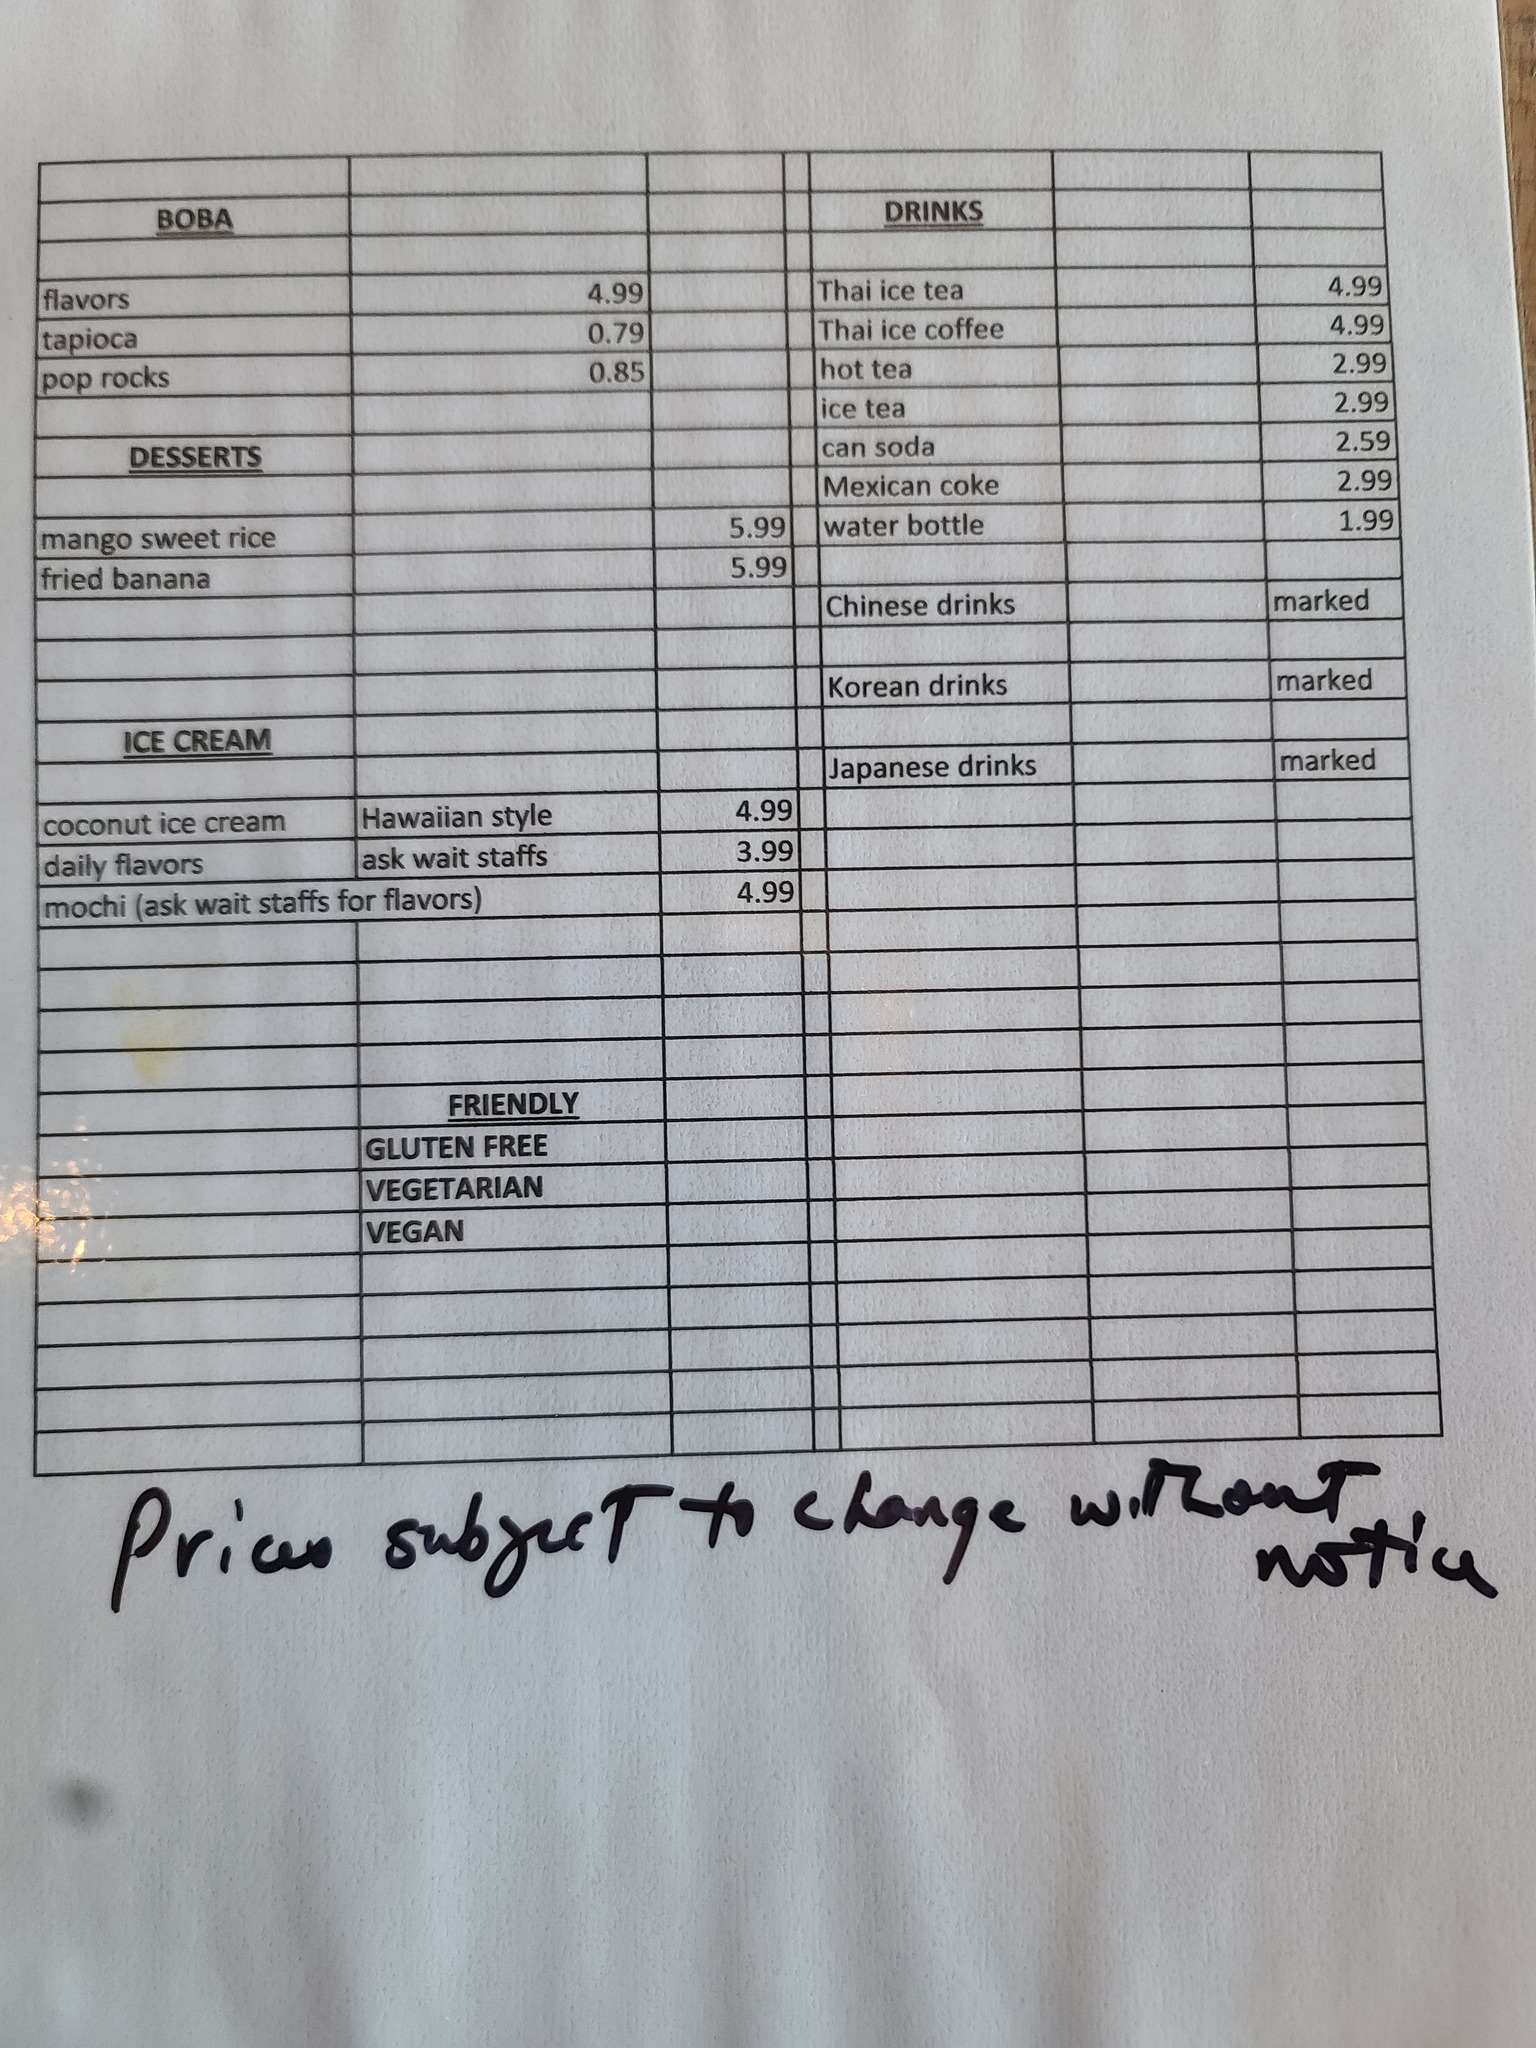 BOBA
flavors 4.99
tapioca 0.79
pop rocks 0.85
DESSERTS
mango sweet rice 5.99
fried banana 5.99
ICE CREAM
coconut ice cream Hawaiian style 4.99
daily flavors ask wait staffs 3.99
mochi (ask wait staffs for flavors) 4.99
FRIENDLY
GLUTEN FREE
VEGETARIAN
VEGAN
DRINKS
Thai ice tea 4.99
Thai ice coffee 4.99
hot tea 2.99
ice tea 2.99
can soda 2.59
Mexican coke 2.99
water bottle 1.99
Chinese drinks marked
Korean drinks marked
Japanese drinks marked
Prices subject to change without
notice